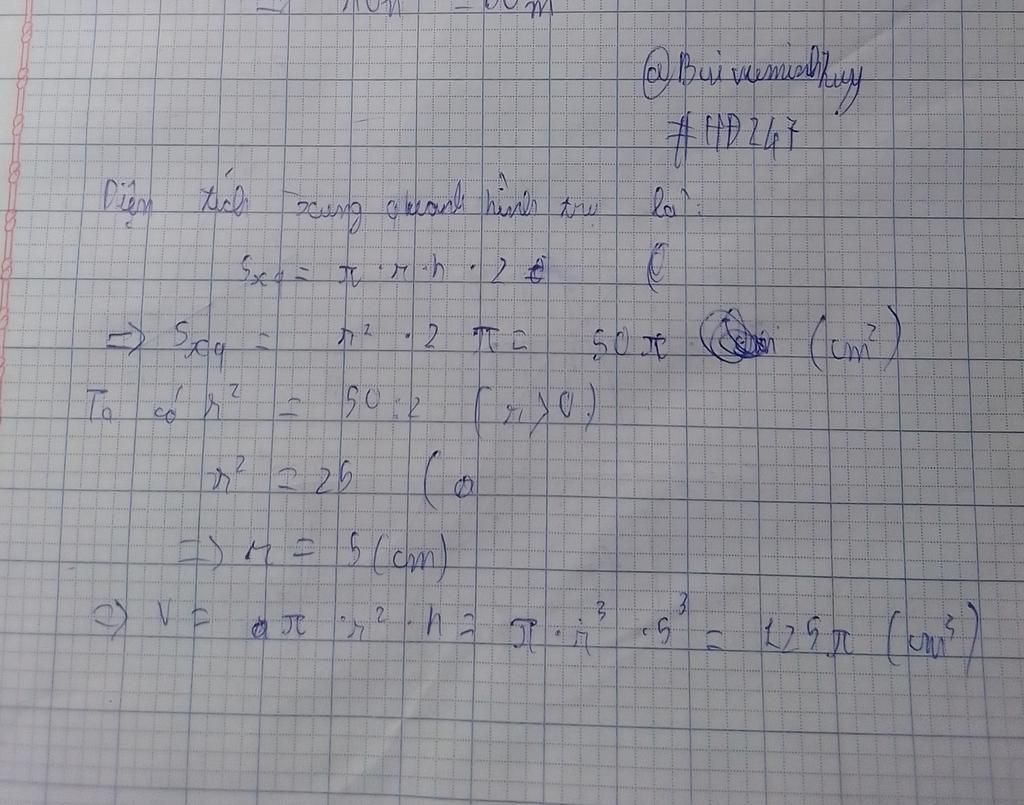 @Bui vuminhhuy
#HD247
Diện tích xung quanh hình trụ là:
Sxq = π · r · h · 2
=> Sxq = r² · 2 π = 50 π (cm²)
Ta có r² = 50 : 2 (r > 0)
r² = 25 (
=> r = 5 (cm)
=> V = π · r² · h = π · r³ · 5³ = 125 π (cm³)